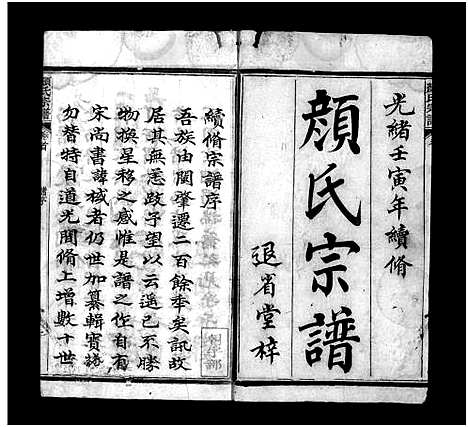 光緒壬寅年續脩
顏氏宗譜
退省堂梓
續脩宗譜序
吾族由閩肇遷二百餘年矣訊故
居其無恙跂予望以云遥已不勝
物換星移之感惟是譜之作自有
宋尚書諱棫者仍世加纂輯寶諸
勿替特自道光間脩上增數十世
顏氏宗譜